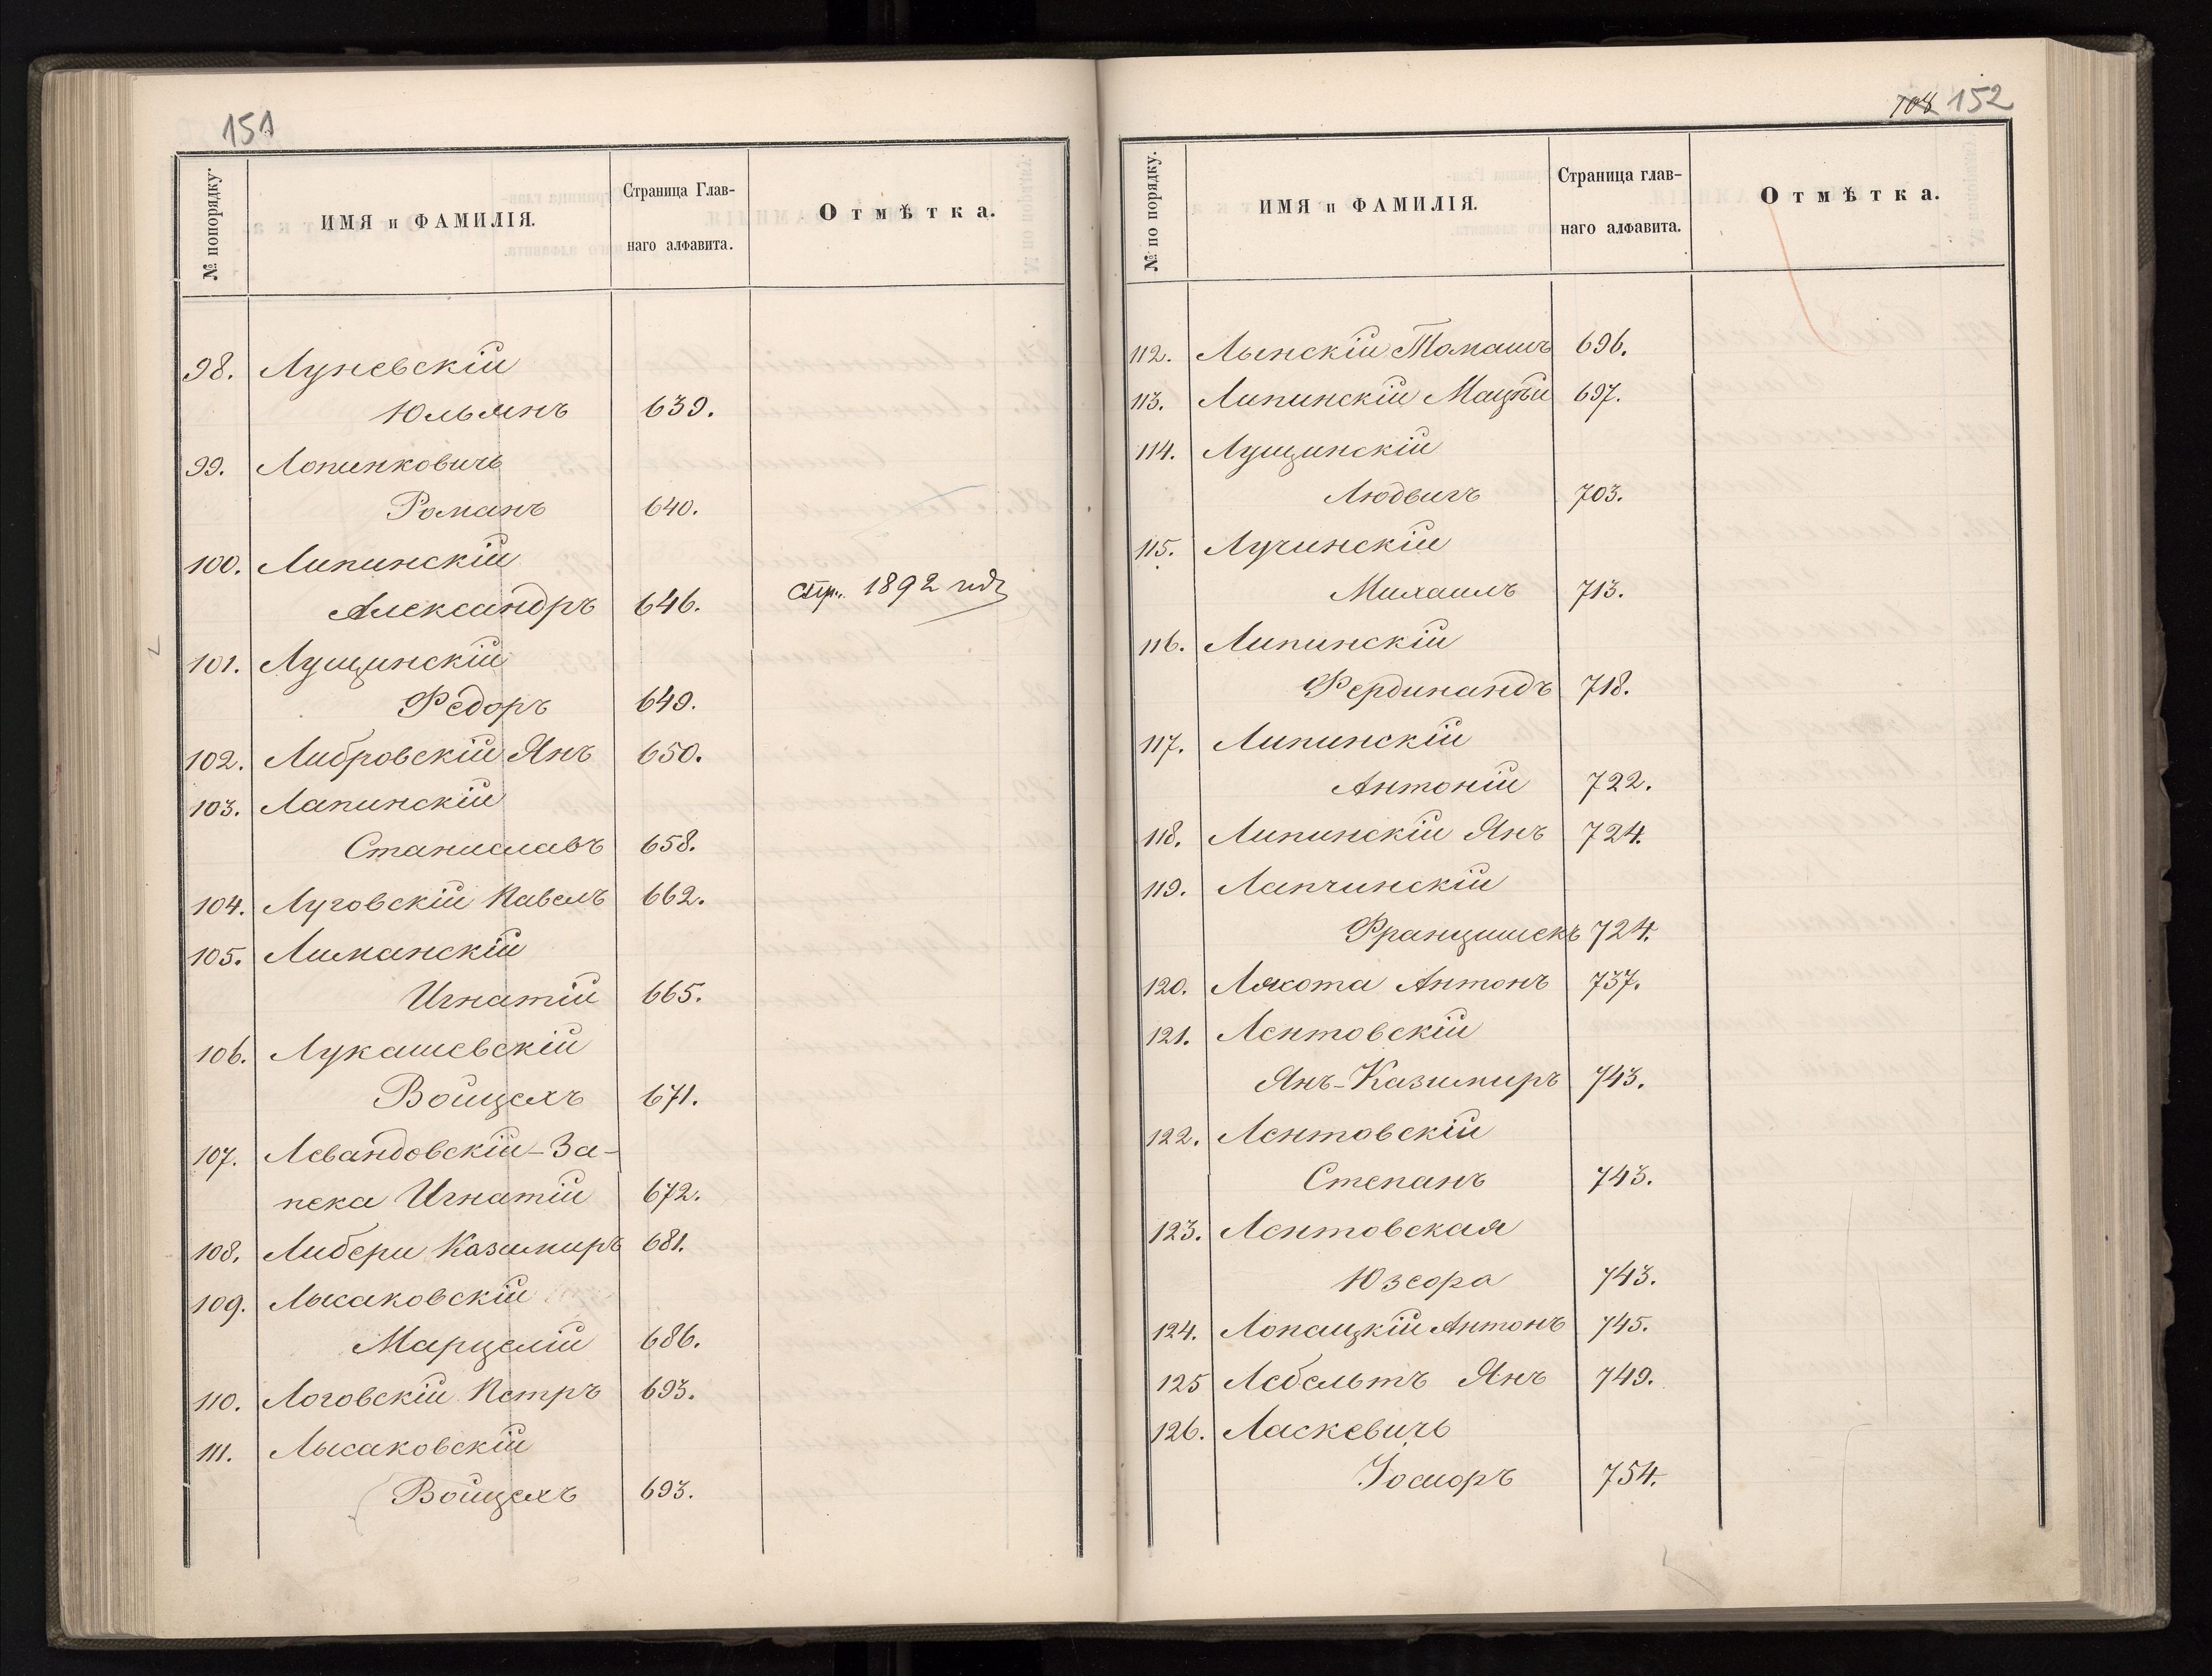 151
№ попорядку.
ИМЯ и ФАМИЛІЯ.
Страница Глав-
наго алфавита.
Отмѣтка.
98. Луневскій
Юльянъ 639.
99. Лопинковичъ
Романъ 640.
100. Липинскій
Александръ 646. Стр. 1892 года
101. Лущинскій
Федоръ 649.
102. Либровскій Янъ 650.
103. Лапинскій
Станиславъ 658.
104. Луговскій Павелъ 662.
105. Лиманскій
Игнатій 665.
106. Лукашевскій
Войцехъ 671.
107. Левандовскій-За-
пека Игнатій 672.
108. Либери Казимиръ 681.
109. Лысаковскій
Марцелій 686.
110. Логовскій Петръ 693.
111. Лысаковскій
Войцехъ 693.
108 152
№ по порядку.
ИМЯ и ФАМИЛІЯ.
Страница глав-
наго алфавита.
Отмѣтка.
112. Лынскій Томашъ 696.
113. Липинскій Мацѣй 697.
114. Лущинскій
Людвигъ 703.
115. Лучинскій
Михаилъ 713.
116. Липинскій
Фердинандъ 718.
117. Липинскій
Антоній 722.
118. Липинскій Янъ 724.
119. Лапчинскій
Францишекъ 724.
120. Ляхота Антонъ 737.
121. Лентовскій
Янъ-Казимиръ 743.
122. Лентовскій
Степанъ 743.
123. Лентовская
Юзефа 743.
124. Лопацкій Антонъ 745.
125 Лебельтъ Янъ 749.
126. Ласкевичъ
754.